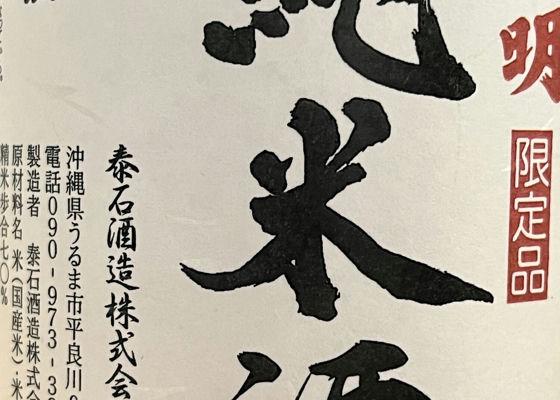 明
限定品
純米酒
泰石酒造株式会
沖縄県うるま市平良川
電話090-973-3
製造者 泰石酒造株式会
原材料名 米(国産米)・米
精米歩合七〇%